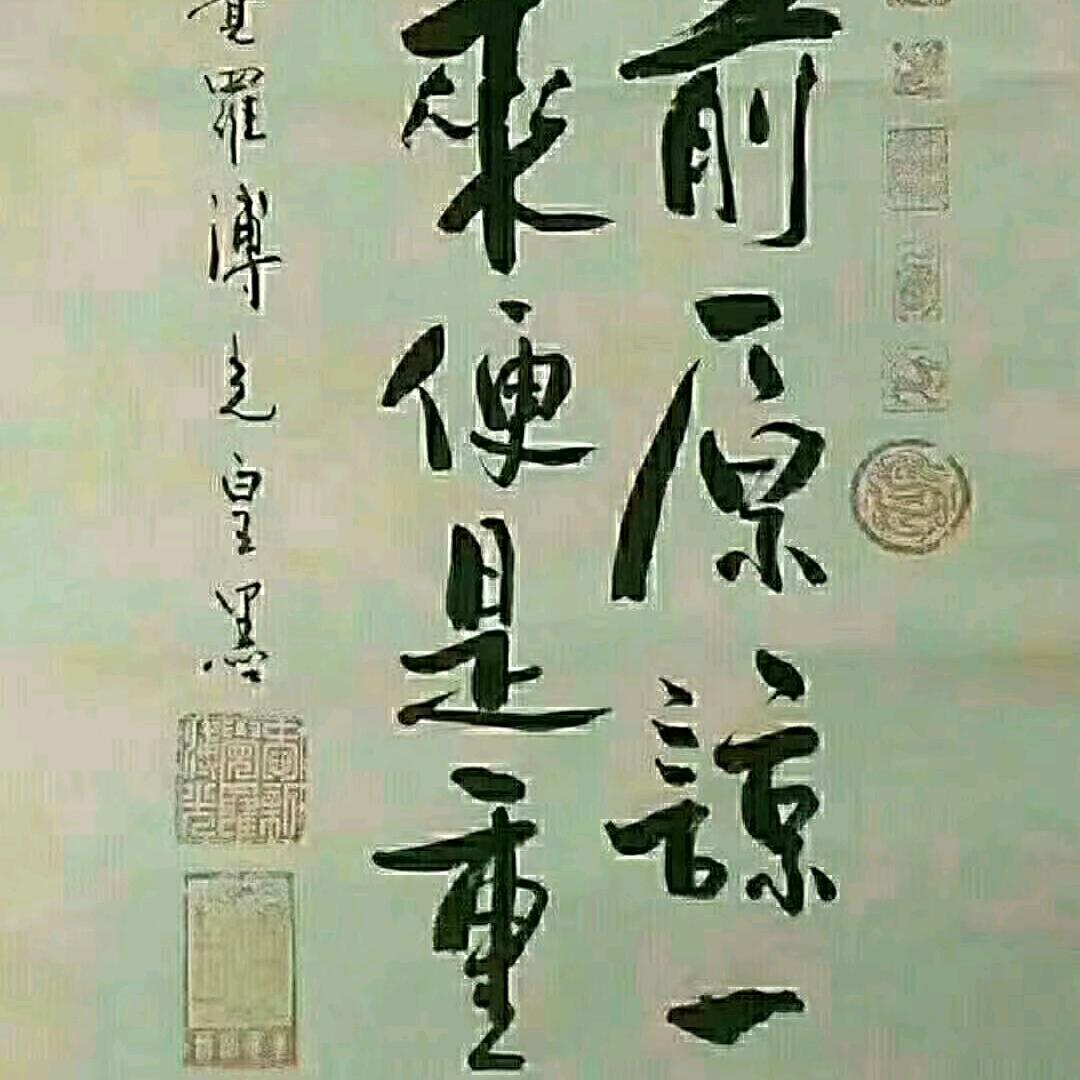 前原諒一
來便是重
覺羅溥光皇墨